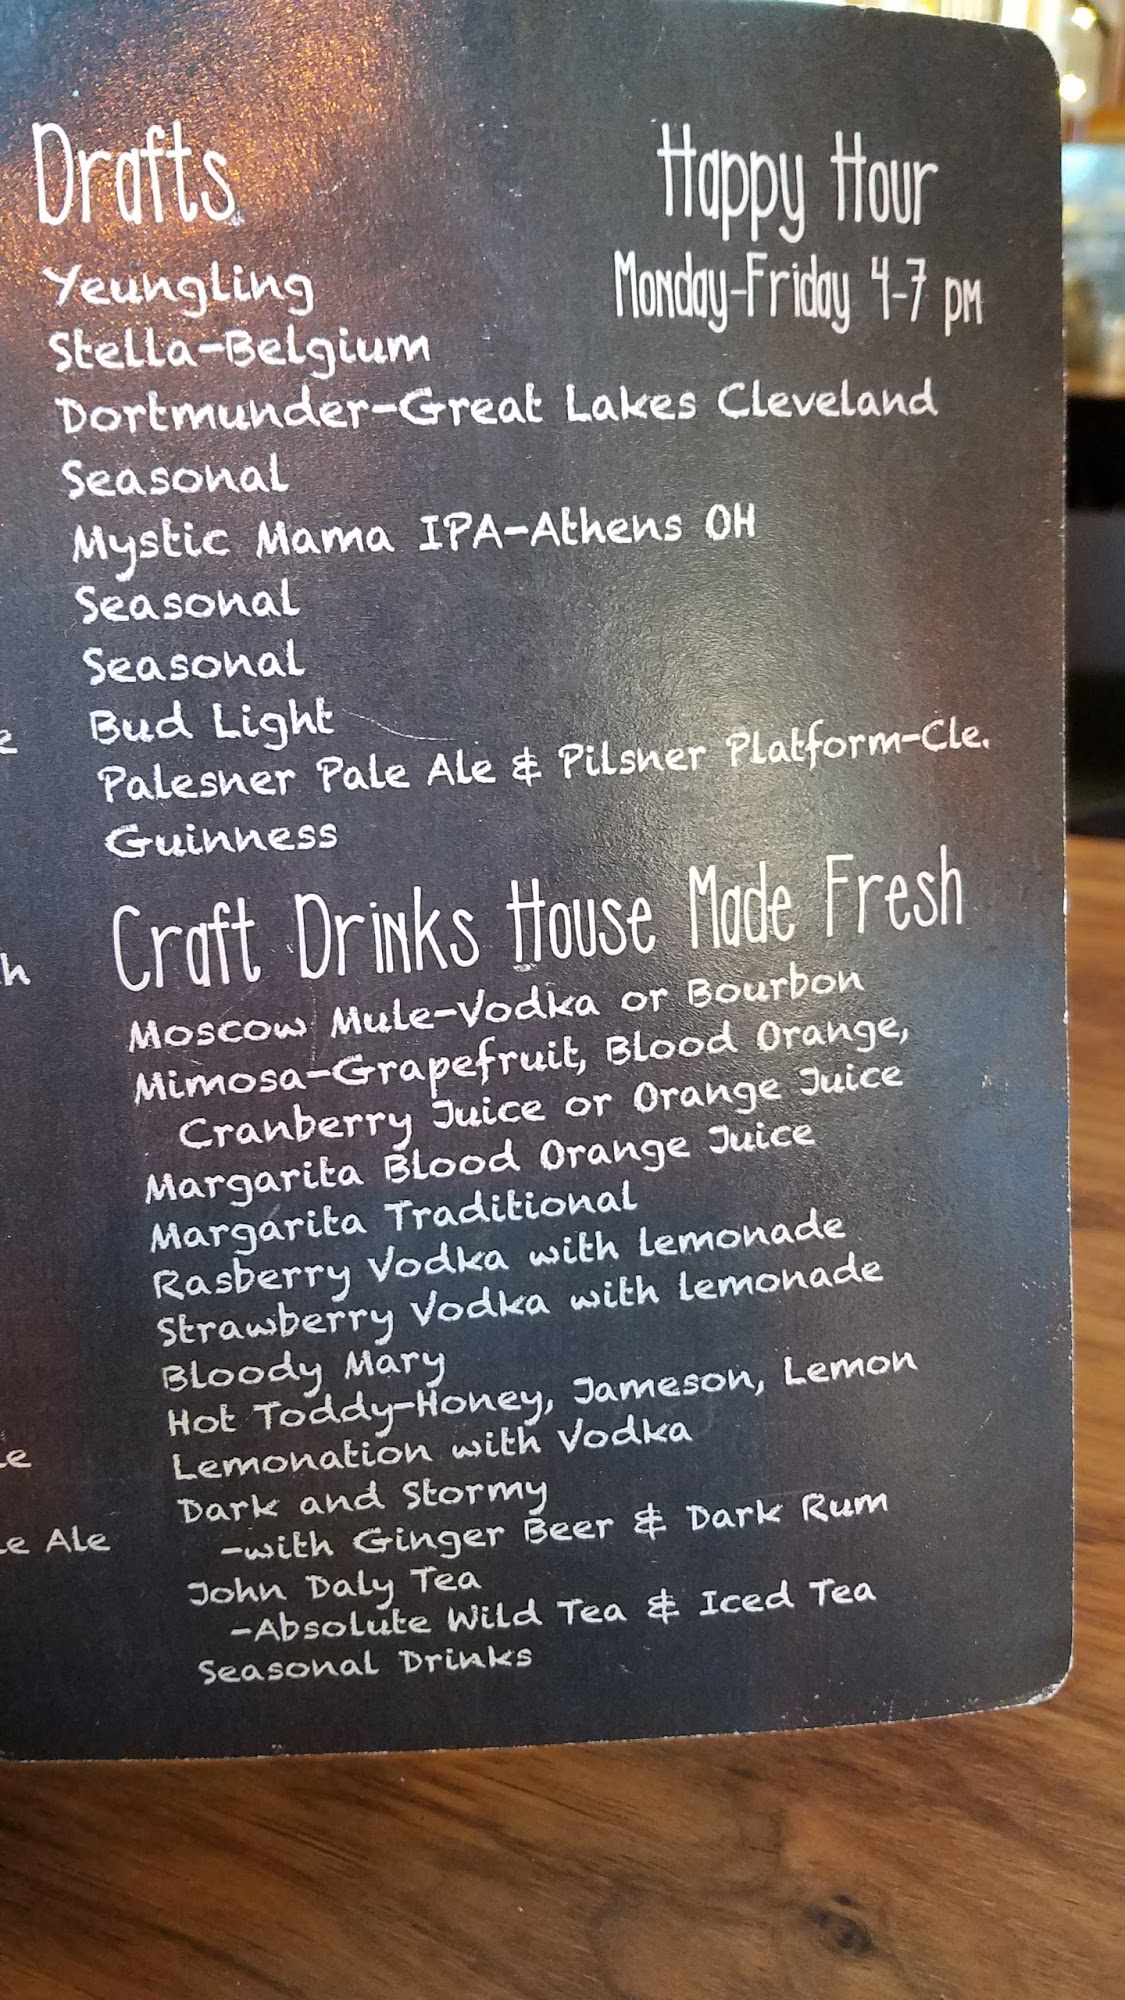 Drafts
Yeungling
Stella-Belgium
Dortmunder-Great Lakes Cleveland
Seasonal
Mystic Mama IPA-Athens OH
Seasonal
Seasonal
Bud Light
Palesner Pale Ale & Pilsner Platform-Cle.
Guinness
Happy Hour
Monday-Friday 4-7 pm
Craft Drinks House Made Fresh
Moscow Mule-Vodka or Bourbon
Mimosa-Grapefruit, Blood Orange,
Cranberry Juice or Orange Juice
Margarita Blood Orange Juice
Margarita Traditional
Rasberry Vodka with lemonade
Strawberry Vodka with lemonade
Bloody Mary
Hot Toddy-Honey, Jameson, Lemon
Lemonation with Vodka
Dark and Stormy
-with Ginger Beer & Dark Rum
John Daly Tea
-Absolute Wild Tea & Iced Tea
Seasonal Drinks
Ale